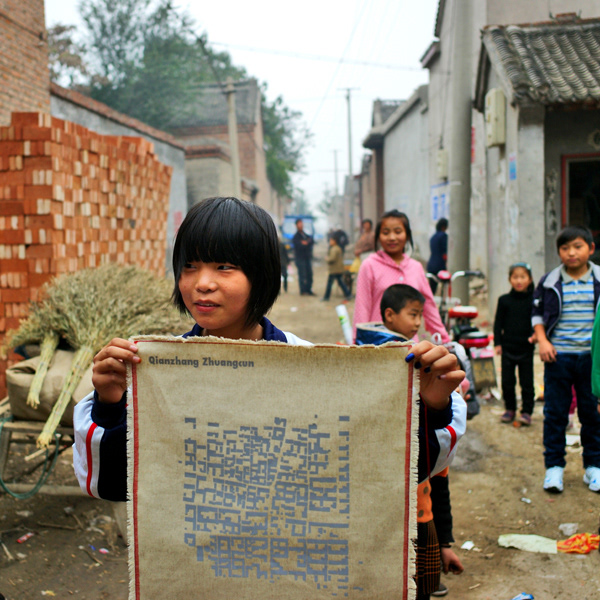 Qianzhang Zhuangcun